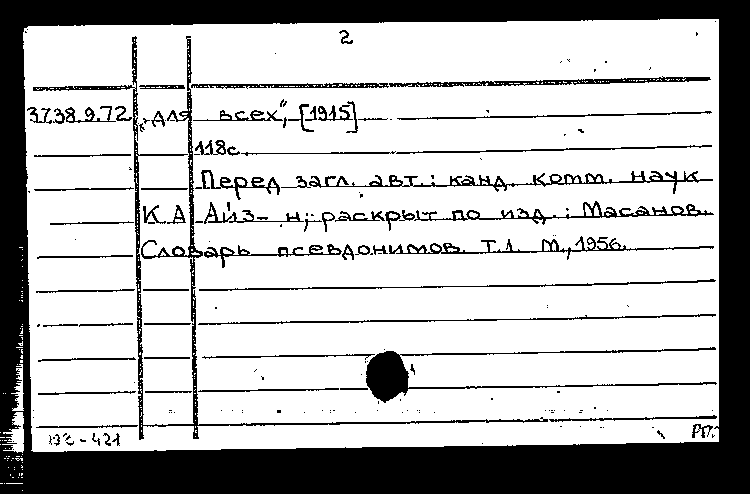 2
37.38.9.72 „для всех", [1915]
118с.
Перед загл. авт.: канд. комм. наук
К А Айз-н; раскрыт по изд.: Масанов.
Словарь псевдонимов. Т.1. М., 1956.
193-421 РП.